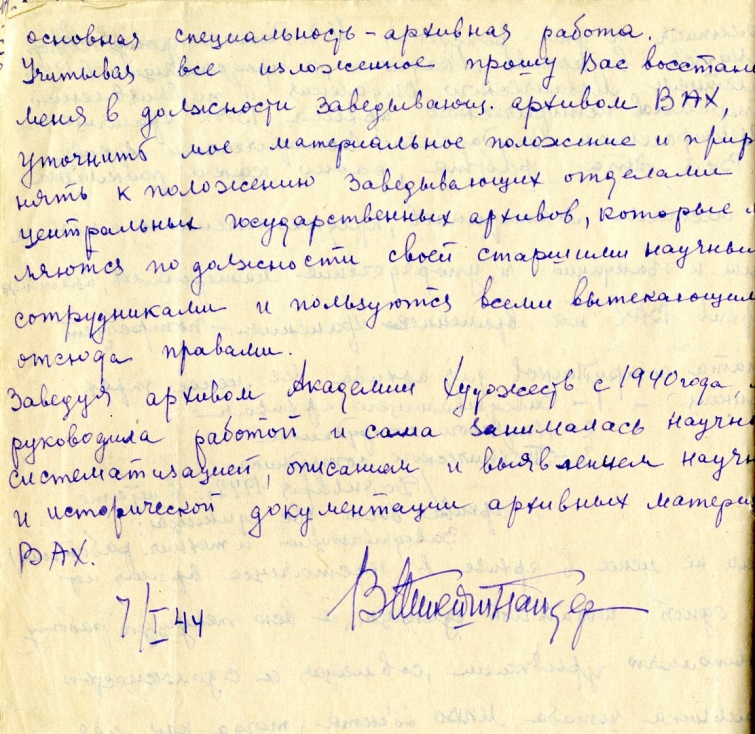 основная специальность - архивная работа.
Учитывая все изложенное прошу Вас восстано
меня в должности Заведывающ. архивом ВАХ,
уточнить мое материальное положение и прир
нять к положению Заведывающих отделами
центральных государственных архивов, которые
ляются по должности своей старшими научным
сотрудниками и пользуются всеми вытекающим
отсюда правами.
Заведуя архивом Академии Художеств с 1940 года
руководила работой и сама занималась научно
систематизацией, описанием и выявлением научн
и исторической документации архивных матери
ВАХ.
7/I 44